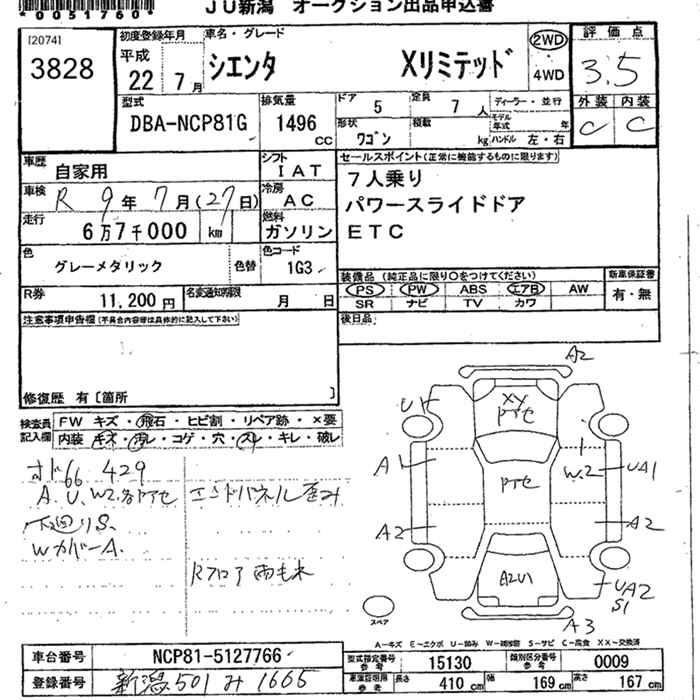 *0051760*
JU新潟 オークション出品申込書
I20741
3828
初度登録年月
平成
22 7月
車名・グレード
シエンタ Xリミテッド
2WD
4WD
評価点
3.5
型式
DBA-NCP81G
排気量
1496 cc
ドア 5
定員 7 人
ディーラー・並行
形状 ワゴン
積載 kg
モデル年式 年
ハンドル 左・右
外装 内装
C C
車歴 自家用
シフト IAT
車検 R 9年 7月(27日)
冷房 AC
走行 6万7千000 km
燃料 ガソリン
セールスポイント(正常に機能するものに限ります)
7人乗り
パワースライドドア
ETC
色 グレーメタリック 色替
色コード 1G3
R券 11,200円
名変通知期限 月 日
装備品(純正品に限り○をつけてください)
PS PW ABS エアB AW
SR ナビ TV カワ
新車保証書
有・無
注意事項申告欄(不具合内容等は具体的に記入して下さい)
後日品
修復歴 有[箇所 ]
検査員記入欄
FW キズ・飛石・ヒビ割・リペア跡・×要
内装 キズ・汚レ・コゲ・穴・スレ・キレ・破レ
429
A.U.W2.各トアセ エンドパネル歪み
下廻りS.
WカバーA.
Rフロア雨もれ
A2
XY
トアセ
A1
トアセ
W2
UA1
A2
A2
A2U1
UA2
S1
A3
スペア
A-キズ E-エクボ U-凹み W-補修跡 S-サビ C-腐食 XX-交換済
車台番号 NCP81-5127766
登録番号 新潟501み1665
型式指定番号 参考 15130
類別区分番号 参考 0009
車庫証明用 参考 長さ 410 cm 幅 169 cm 高さ 167 cm